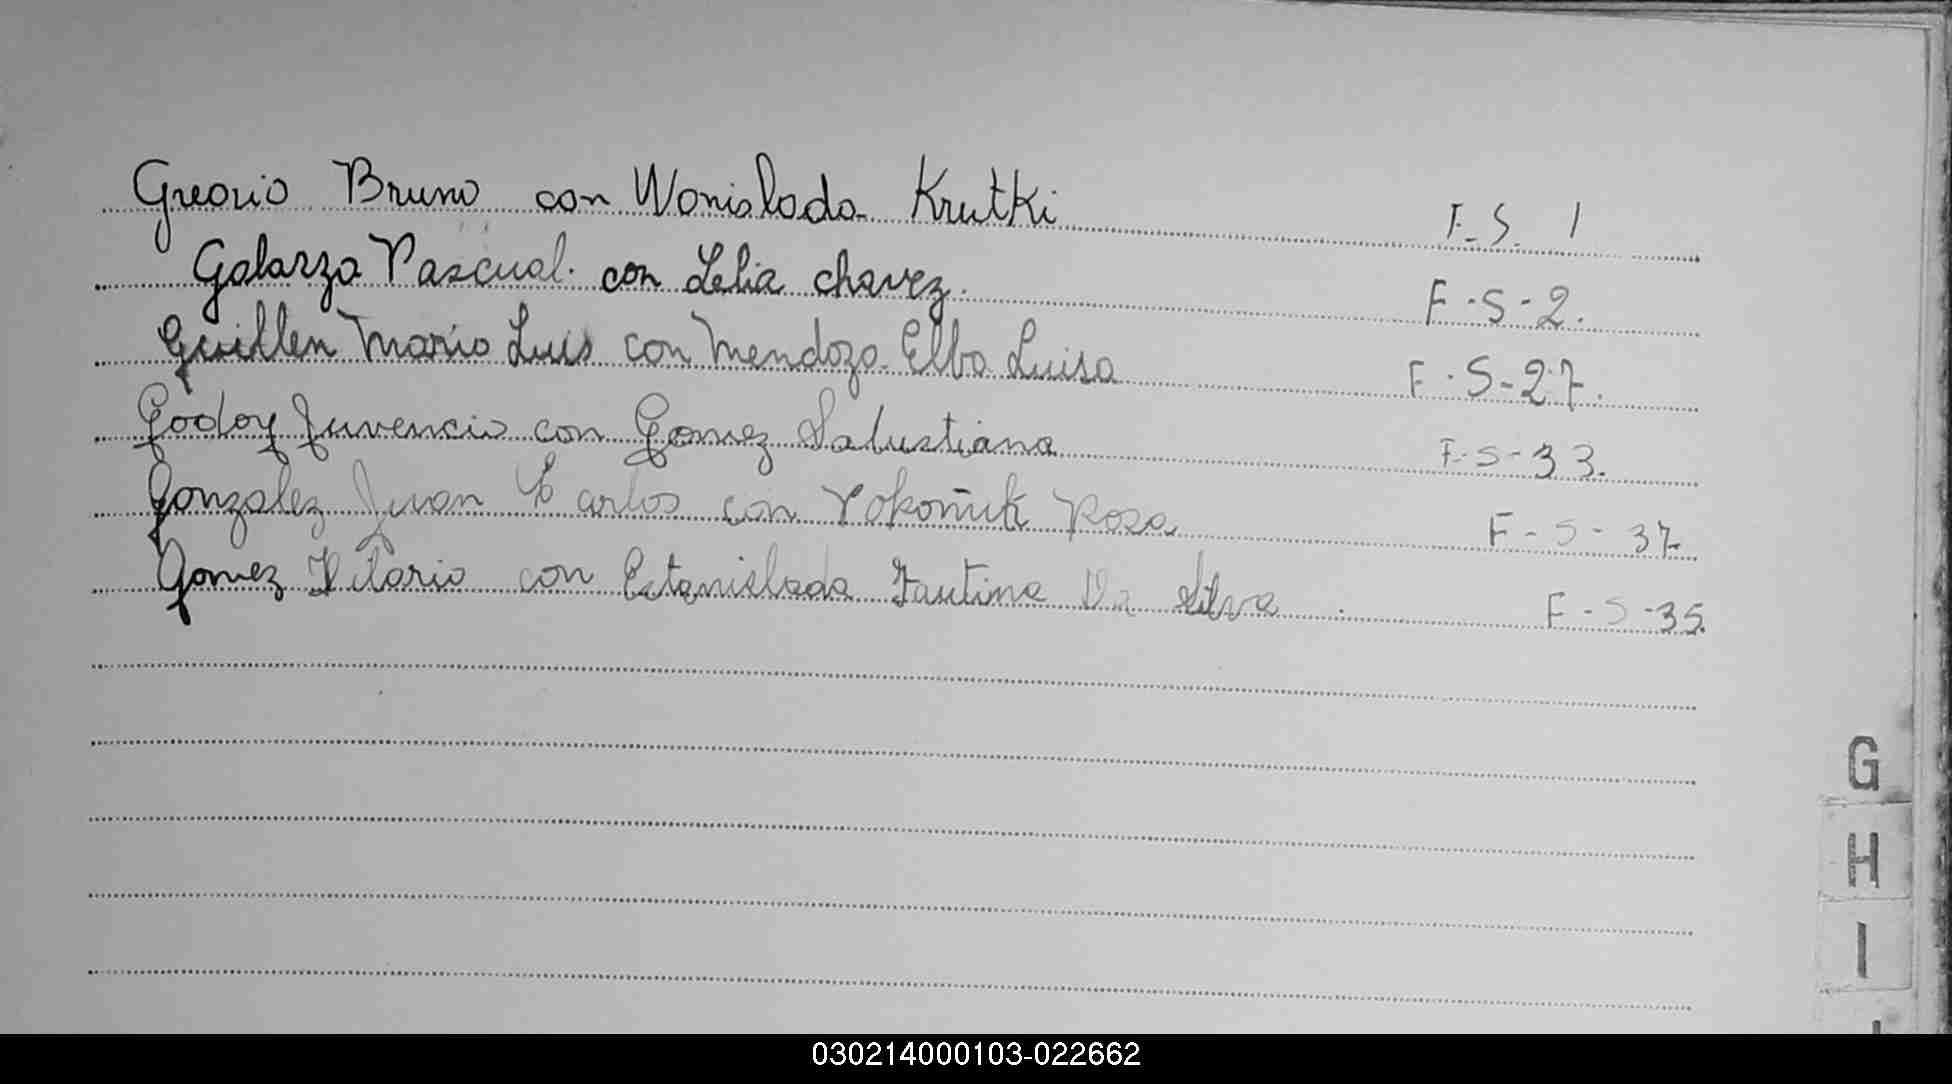 Greorio Bruno con Wonislada Krutki F.S. 1
Galarza Pascual. con Lelia chavez. F-S-2.
Guillen Mario Luis con Mendoza Elba Luisa F.S-27.
Godoy Juvencio con Gomez Salustiana F-S-33.
Gonzalez Juan Carlos con Rosa F-S-37
Gomez Ilario con Estanislada Fautina Da Silva F-S-35.
G
H
I
030214000103-022662